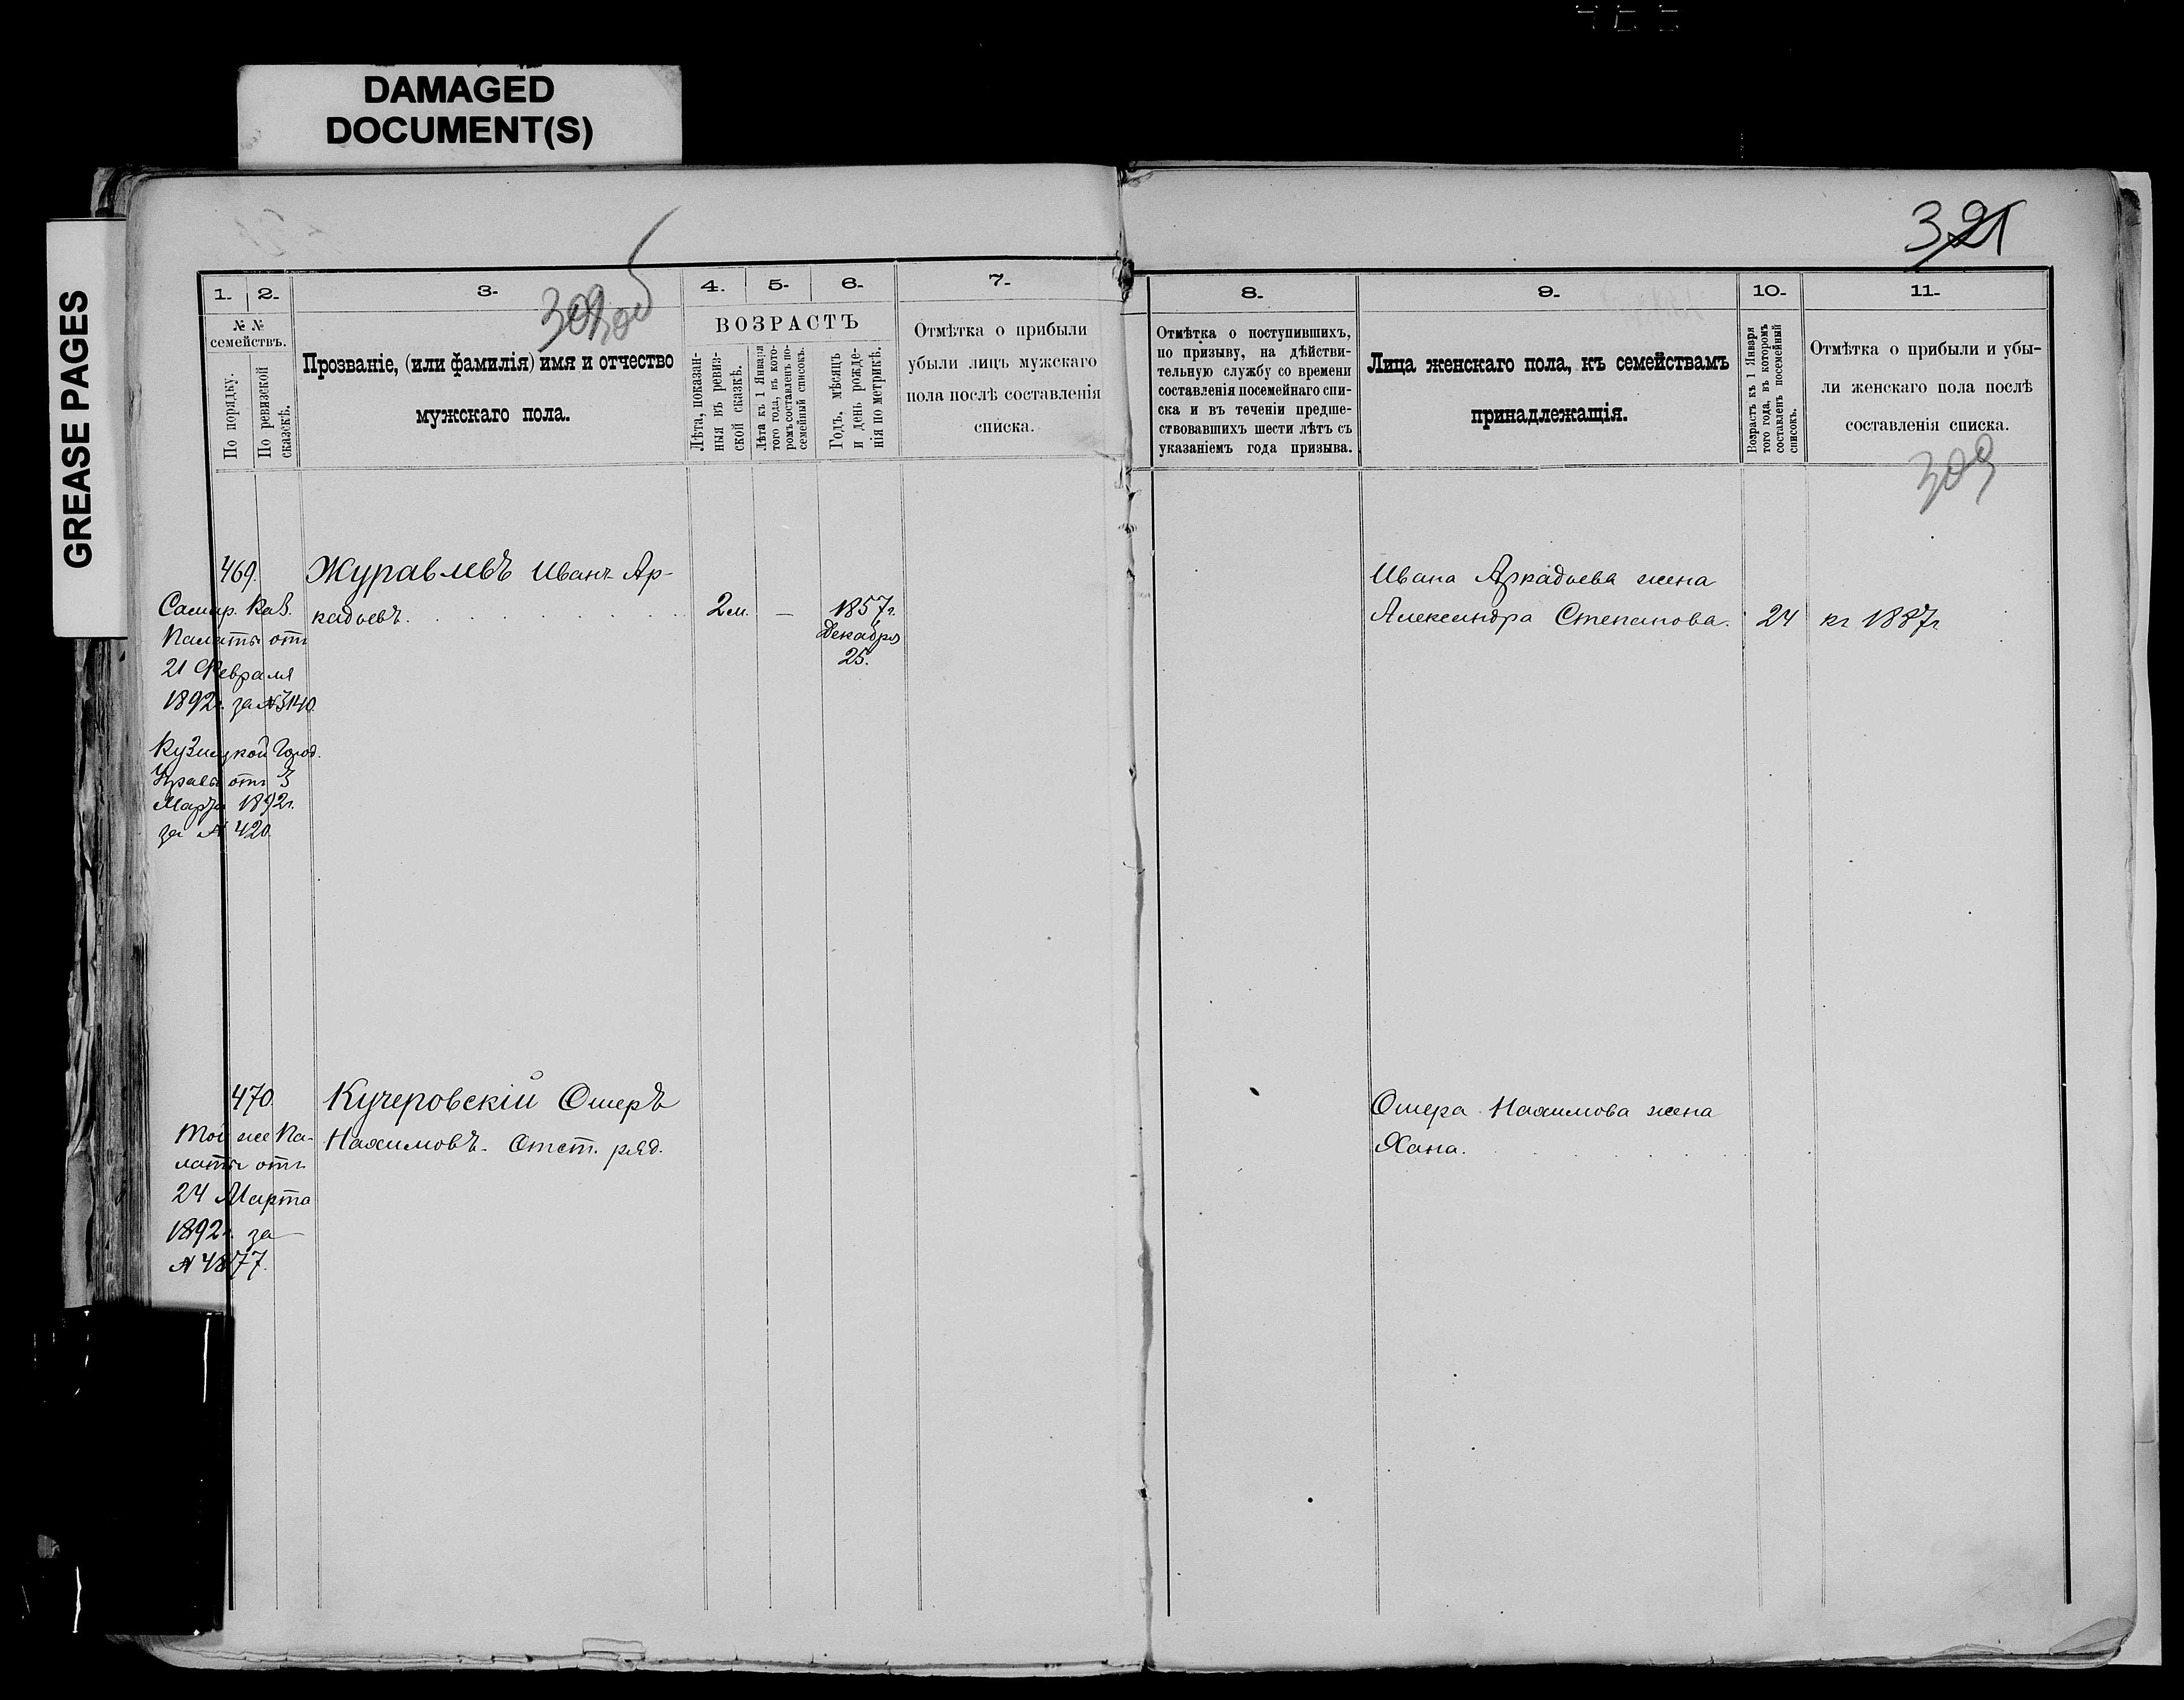 DAMAGED
DOCUMENT(S)
GREASE PAGES
321
309
1.
2.
3.
4.
5.
6.
7.
№ №
семействъ.
По порядку.
По ревизской
сказскѣ.
Прозваніе, (или фамилія) имя и отчество
мужскаго пола.
ВОЗРАСТЪ
Лѣта, показан-
ныя въ ревиз-
ской сказкѣ.
Лѣта къ 1 Января
того года, въ кото-
ромъ составленъ по-
семейный списокъ.
Годъ, мѣсяцъ
и день рожде-
нія по метрикѣ.
Отмѣтка о прибыли
убыли лицъ мужскаго
пола послѣ составленія
списка.
469.
Самар. Каз.
Палаты отъ
21 Февраля
1892г. за №3140.
Кузнецкой Город.
Управы отъ 3
Марта 1892г.
за № 420.
Журавлевъ Иванъ Ар-
кадьевъ.
2м.
—
1857г.
Декабря
25.
470.
Той же Па-
латы отъ
24 Марта
1892г. за
№ 4877.
Кучеровскій Ошеръ
Нахимовъ. Отст. ряд.
8.
9.
10.
11.
Отмѣтка о поступившихъ,
по призыву, на дѣйстви-
тельную службу со времени
составленія посемейнаго спи-
ска и въ теченіи предше-
ствовавшихъ шести лѣтъ съ
указаніемъ года призыва.
Лица женскаго пола, къ семействамъ
принадлежащія.
Возрастъ къ 1 Января
того года, въ которомъ
составленъ посемейный
списокъ.
Отмѣтка о прибыли и убы-
ли женскаго пола послѣ
составленія списка.
309
Ивана Аркадьева жена
Александра Степанова.
24
къ 1887г
Ошера Нахимова жена
Хана.